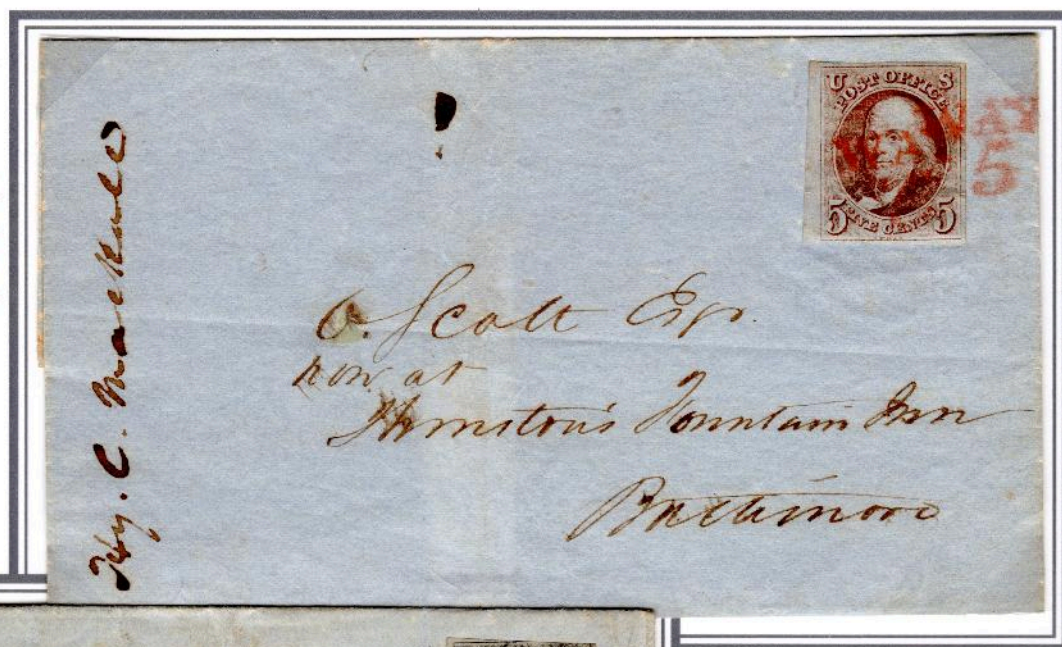 Hy. C. Mackall
U S
POST OFFICE
5 FIVE CENTS 5
5
Scott Esqr.
now at
Fountain Inn
Baltimore